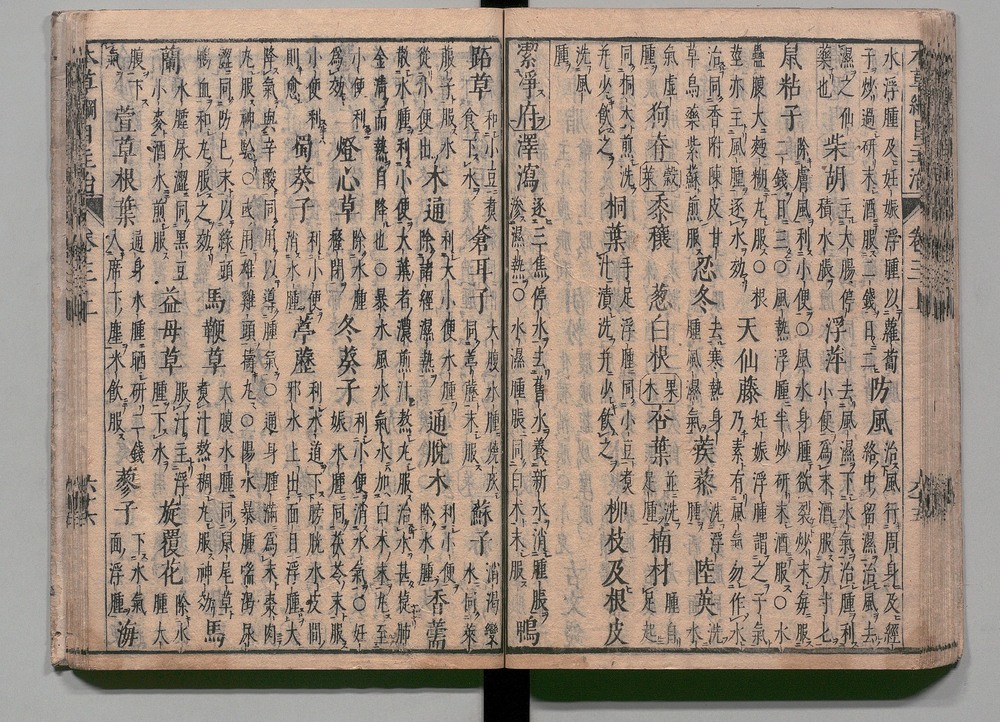 水浮腫及妊娠浮腫以蘿蔔 防風 治風行周身及經
子炒過研末酒服二錢日二 絡中留濕治風去
濕之仙 柴胡 主大腸停 浮萍 去風濕下水氣治腫利
藥也 積水脹 小便爲末酒服方寸匕
鼠粘子 除膚風利小便○風水身腫欲裂炒末每服
二錢日三○風熱浮腫半炒研末酒服○水
蠱腹大麪糊丸服○根 天仙藤 妊娠浮腫謂之子氣
莖亦主風腫逐水效 乃素有風氣勿作水
治同香附陳皮甘 忍冬 去寒熱身 蒺藜 洗浮 陸英 水
草烏藥紫蘇煎服 腫風濕氣 腫 洗
氣虛 狗脊 穀菜 黍穰 葱白根 果木 杏葉 並洗 楠材 腫自
腫 足腫 足起
同桐木煎洗 桐葉 手足浮腫同小豆 柳枝及根皮
并少飲之 煮汁漬洗并少飲之
洗風
腫
潔淨府 澤瀉 逐三焦停水去舊水養新水消腫脹 鴨
滲濕熱○水濕腫脹同白朮末服
跖草 和小豆煮 蒼耳子 大腹水腫燒灰 蘇子 消渴變
食下水 同葶藶末服 水同萊
菔子服水 木通 利大小便水腫 通脫木 利小便 香薷
從小便出 除諸經濕熱 除水腫
散水腫利小便大葉者濃煎汁熬丸服治水甚捷肺
金清而熱自降也○暴水風水氣水加白朮末丸至
小便利 燈心草 除水腫 冬葵子 利小便消水氣○妊
爲效 癃閉 娠水腫同茯苓末服
小便利 蜀葵子 利小便 葶藶 利水道下膀胱水皮間
則愈 消水腫 邪水上出面目浮腫大
降氣與辛酸同用以導腫氣○通身腫滿爲末棗肉
丸服神效或用雄雞頭擣丸○陽水暴腫喘渴尿
澀同防已末以綠頭 馬鞭草 大腹水腫同鼠尾草 馬
鴨血和丸服之效 煮汁熬稠丸服神效
蘭 水腫尿澀同黑豆 益母草 服汁主浮 旋覆花 除水
小麥酒水煎服 腫下水 腫大
腹下 萱草根葉 通身水腫晒研二錢 蓼子 下水氣 海
氣 入席下塵米飲服 面浮腫
本草綱目主治
卷三上